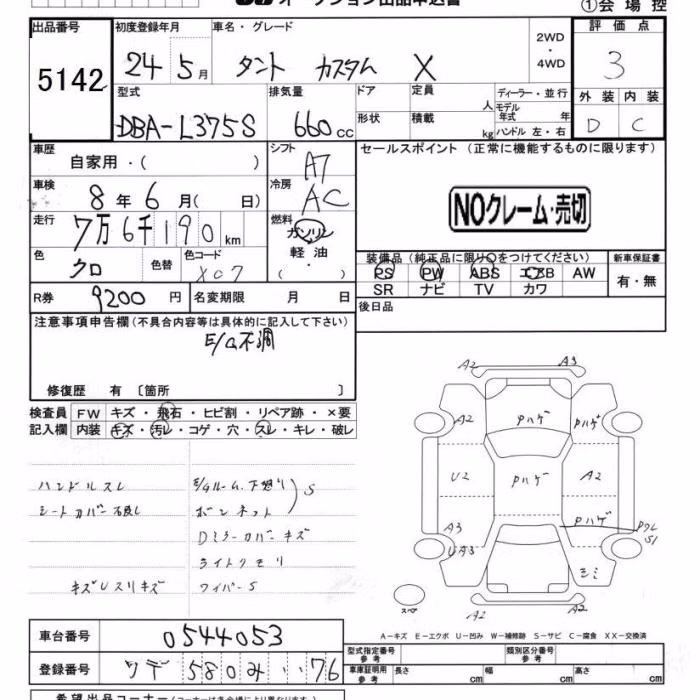 オークション出品申込書
①会場控
出品番号 初度登録年月 車名・グレード 評価点
5142
24年5月 タント カスタム X 2WD・4WD 3
型式 排気量 ドア 定員 人 ディーラー・並行 外装 内装
DBA-L375S 660cc 形状 積載 kg モデル年式 年 ハンドル 左・右 D C
車歴 自家用・( ) シフト A7 セールスポイント(正常に機能するものに限ります)
車検 8年6月( 日) 冷房 AC
NOクレーム・売切
走行 7万6千190km 燃料 ガソリン
軽油
・( )
色 クロ 色替 色コード X07
装備品(純正品に限り○をつけてください) 新車保証書
PS PW ABS エアB AW 有・無
SR ナビ TV カワ
R券 9200円 名変期限 月 日 後日品
注意事項申告欄(不具合内容等は具体的に記入して下さい)
E/G不調
修復歴 有 〔箇所 〕
検査員 FW キズ・飛石・ヒビ割・リペア跡・×要
記入欄 内装 キズ・汚レ・コゲ・穴・スレ・キレ・破レ
ハンドルスレ E/Gルーム、下廻り S
シートカバー ボンネット
Dミラーカバーキズ
ライトクモリ
キズUスリキズ ワイパーS
A2 A3
A2 Pハゲ Pハゲ
U2 Pハゲ A2
A3 Pハゲ PワレS1
UA3 シミ
スペア A2 A2
A-キズ E-エクボ U-凹み W-補修跡 S-サビ C-腐食 XX-交換済
車台番号 0544053
型式指定番号 参考 類別区分番号 参考
登録番号 580み・・76
車庫証明用 参考 長さ cm 幅 cm 高さ cm
希望出品コーナー(コーナーは各会場により異なります)